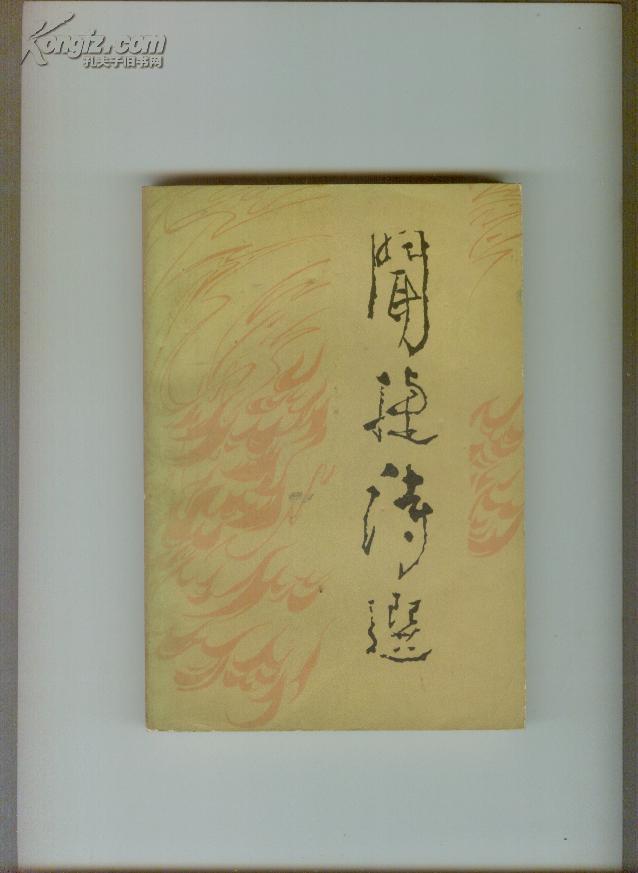 Kongfz.com
孔夫子旧书网
聞捷詩選